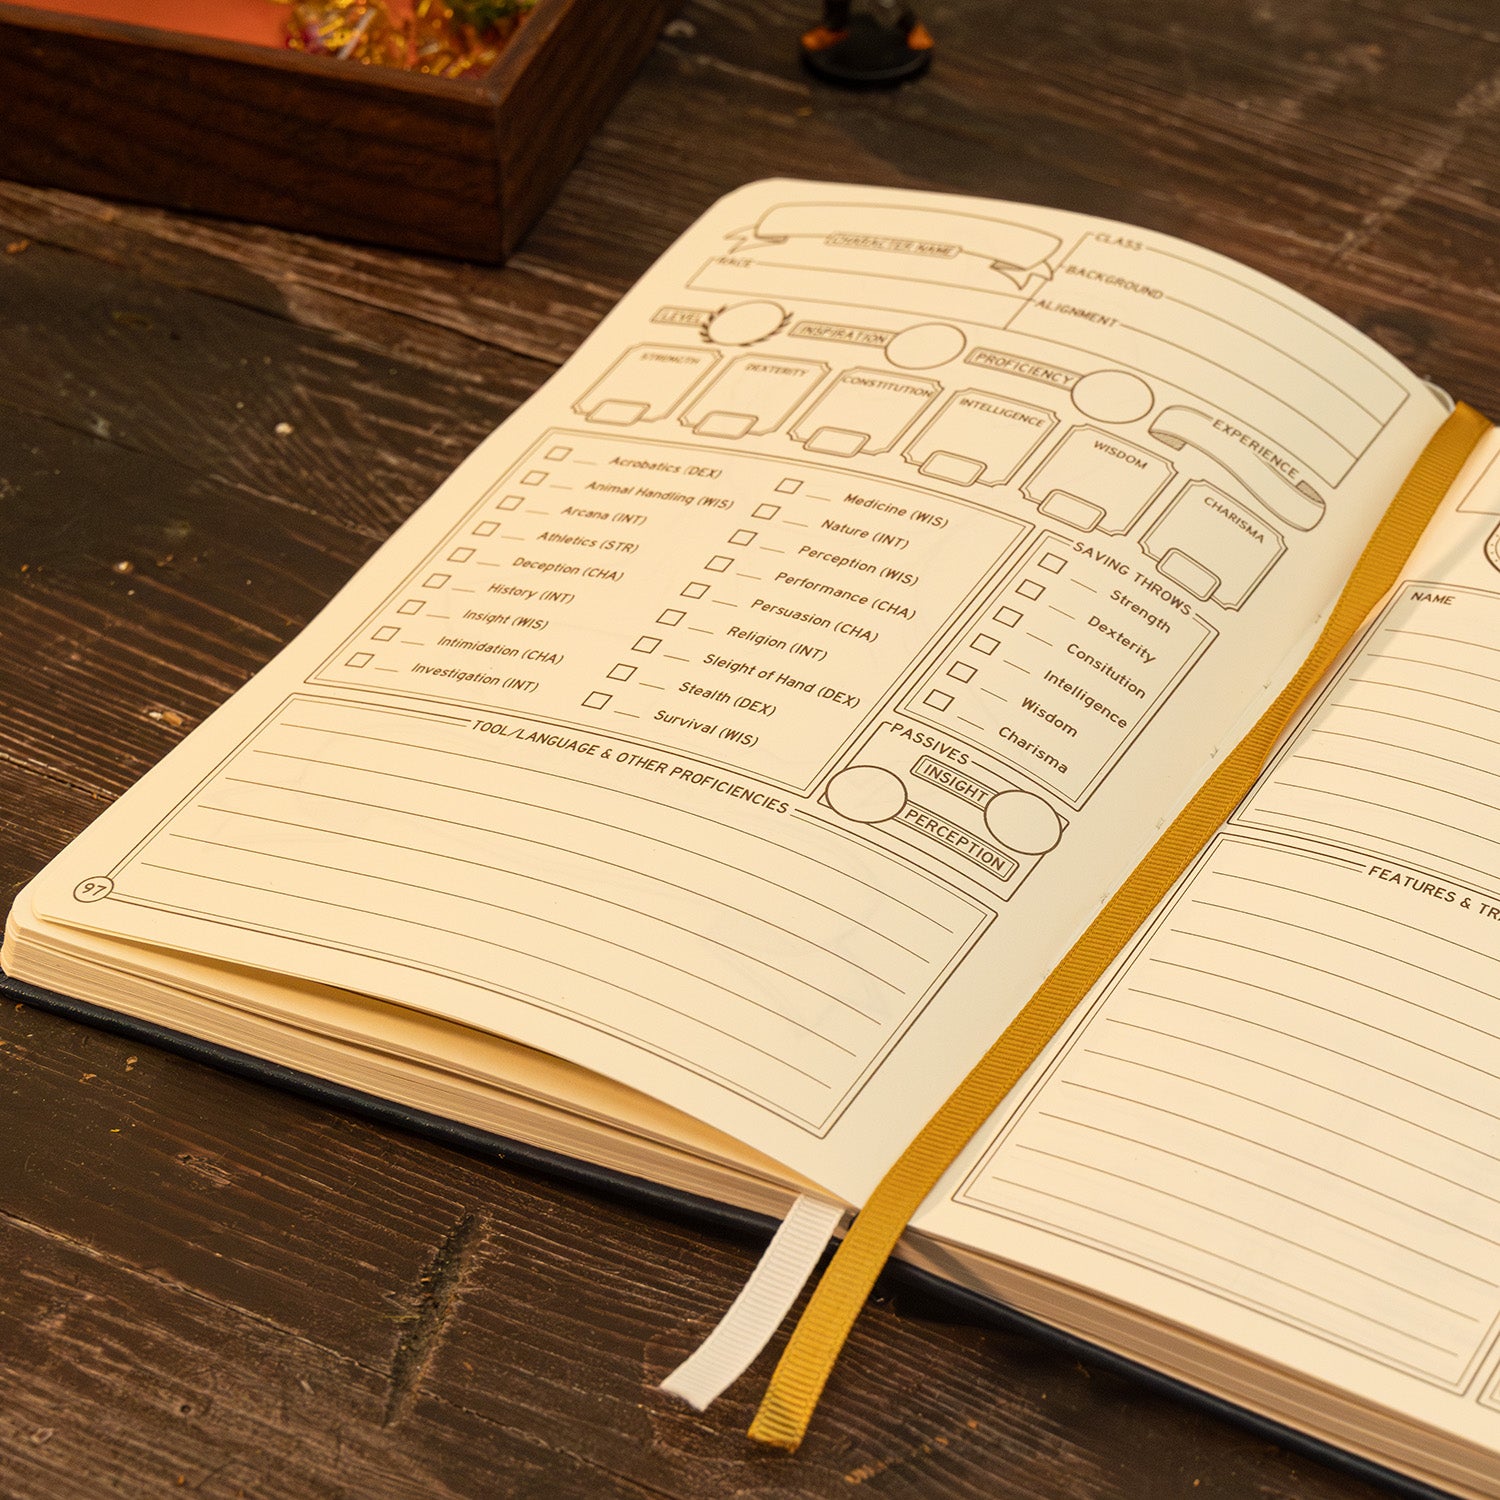 CHARACTER NAME
CLASS
RACE
BACKGROUND
ALIGNMENT
LEVEL
INSPIRATION
PROFICIENCY
EXPERIENCE
STRENGTH
DEXTERITY
CONSTITUTION
INTELLIGENCE
WISDOM
CHARISMA
Acrobatics (DEX)
Animal Handling (WIS)
Arcana (INT)
Athletics (STR)
Deception (CHA)
History (INT)
Insight (WIS)
Intimidation (CHA)
Investigation (INT)
Medicine (WIS)
Nature (INT)
Perception (WIS)
Performance (CHA)
Persuasion (CHA)
Religion (INT)
Sleight of Hand (DEX)
Stealth (DEX)
Survival (WIS)
SAVING THROWS
Strength
Dexterity
Consitution
Intelligence
Wisdom
Charisma
PASSIVES
INSIGHT
PERCEPTION
TOOL/LANGUAGE & OTHER PROFICIENCIES
97
NAME
FEATURES & TRA